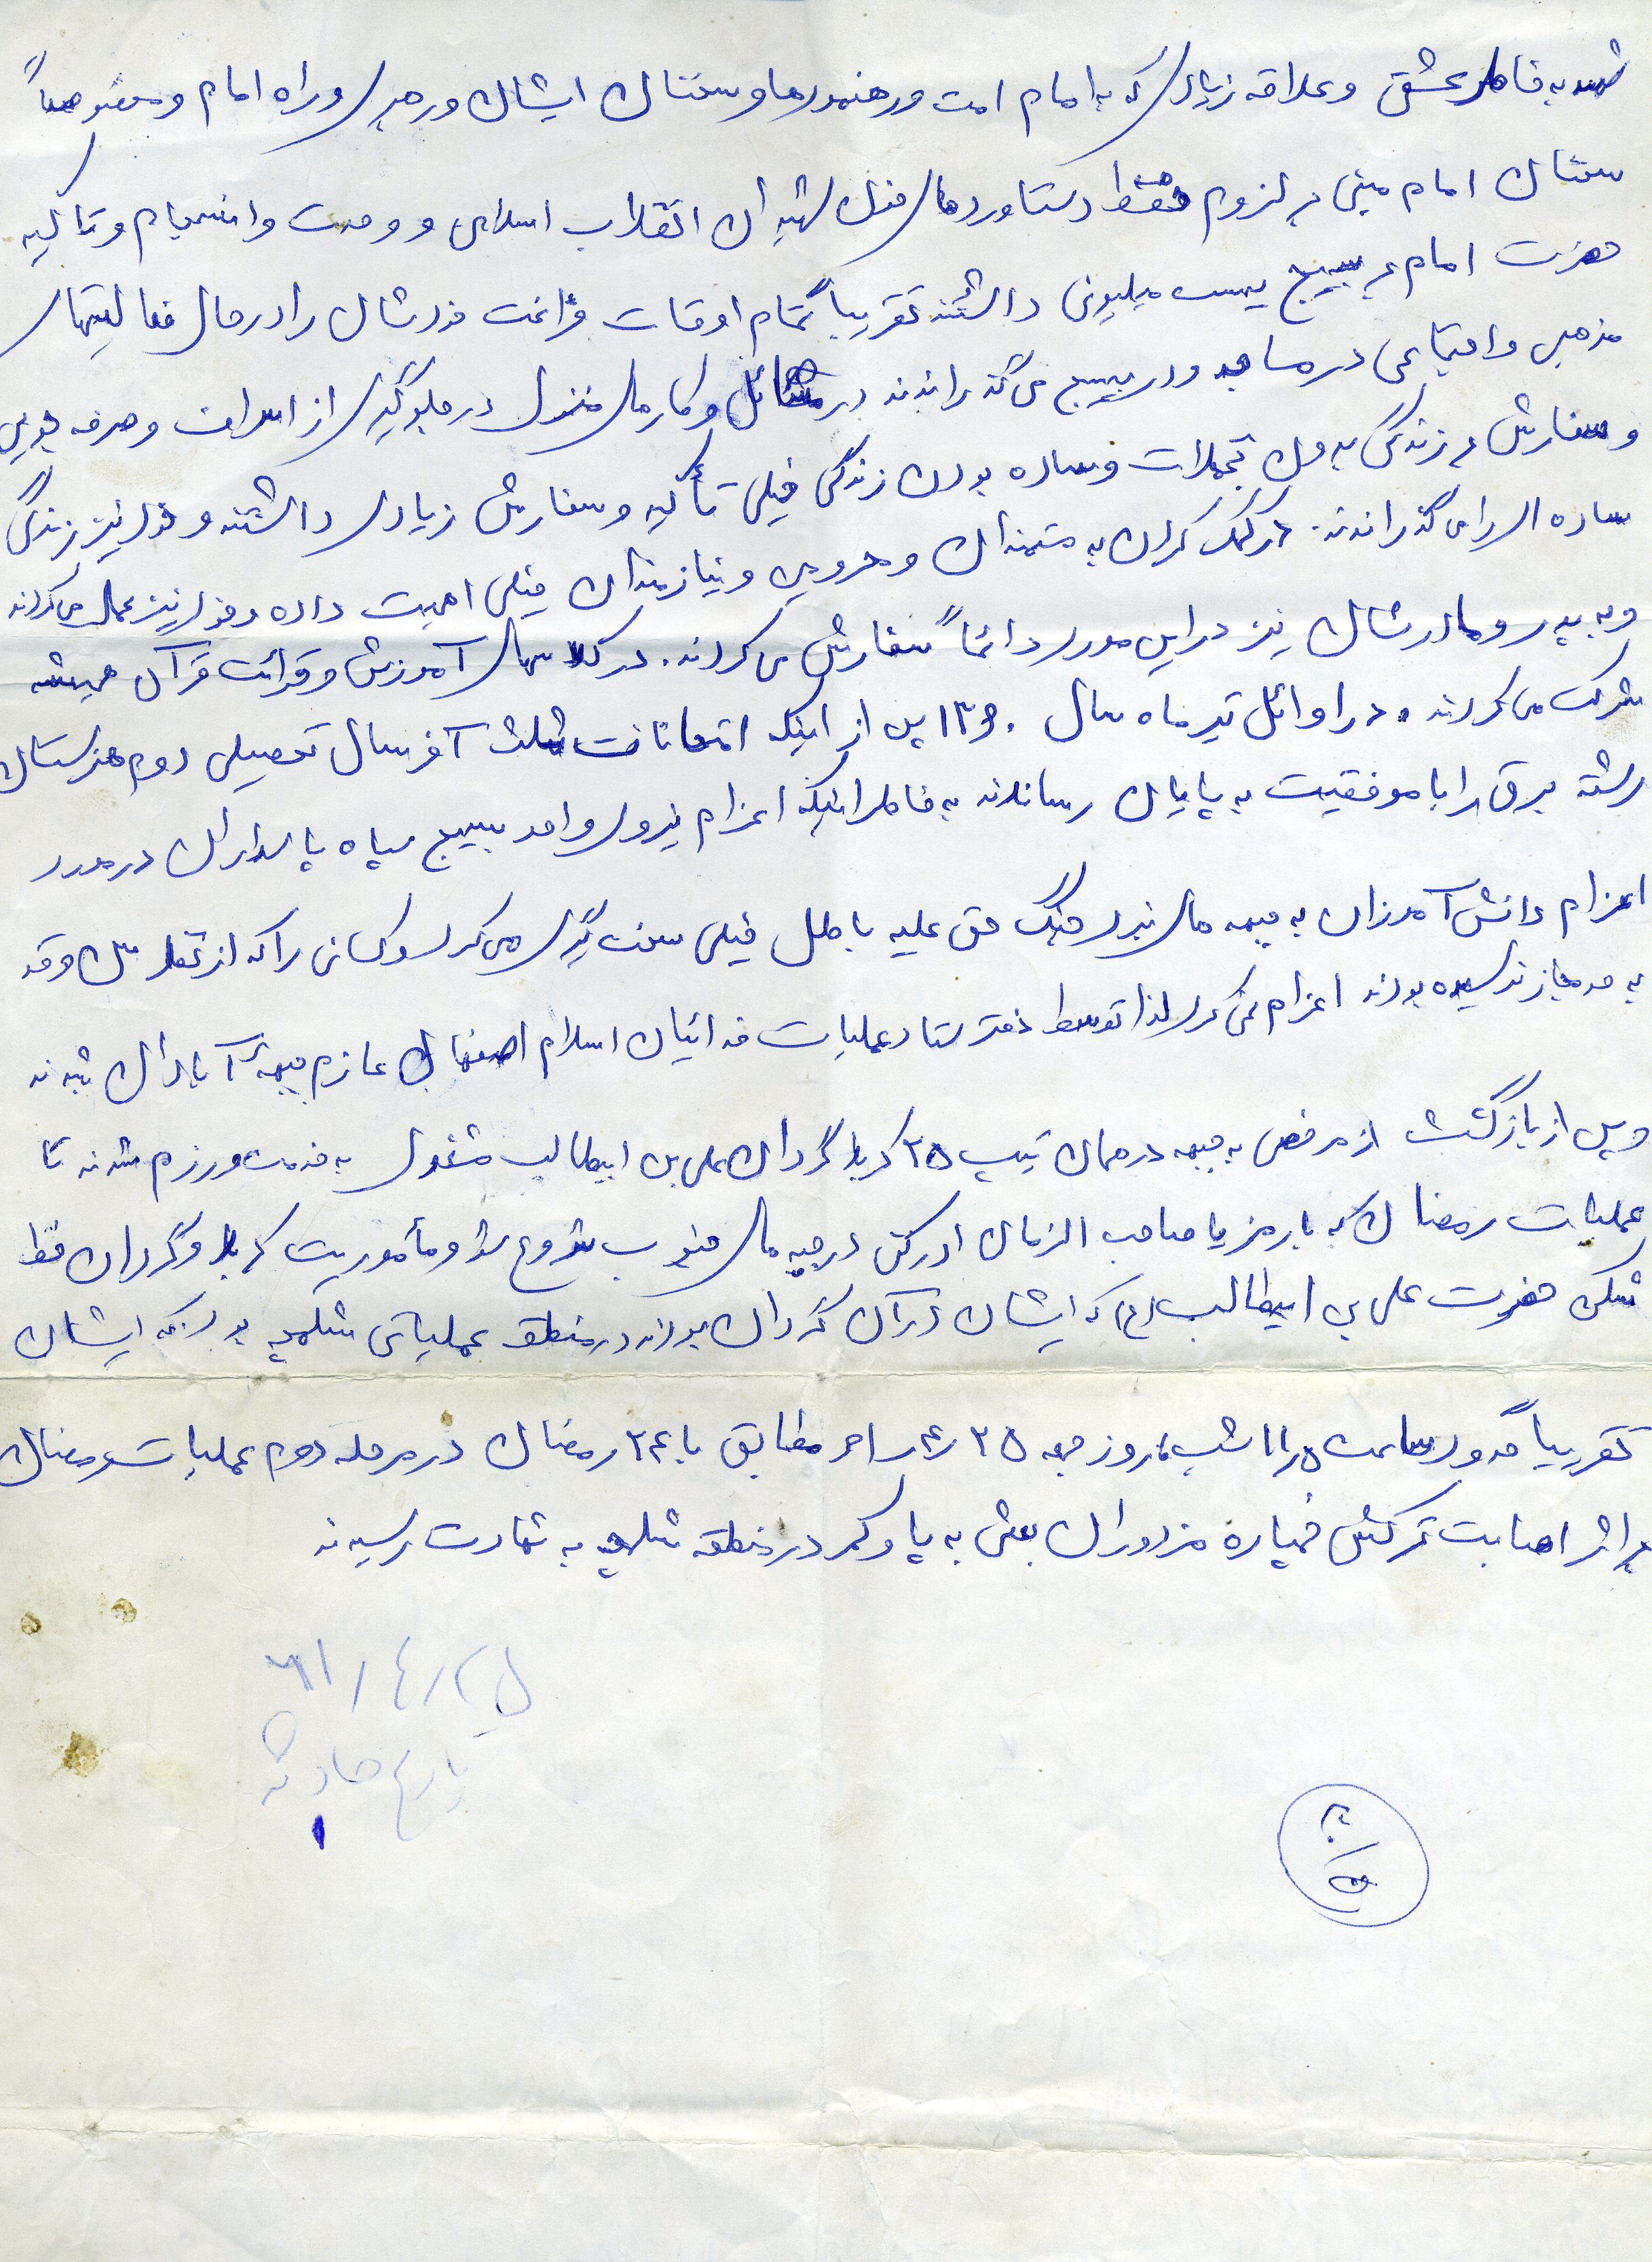 شهید به خاطر عشق و علاقه زیادی که به امام امت و رهنمودها و سخنان ایشان و رهبری و راه امام و مخصوصاً
سخنان امام مبنی بر لزوم حفظ دستاوردهای خون شهیدان انقلاب اسلامی و وحدت و انسجام و تاکید
حضرت امام بر بسیج بیست میلیونی داشتند تقریباً تمام اوقات فراغت خودشان را در حال فعالیتهای
مذهبی و اجتماعی در مساجد و در بسیج می گذراندند در مسائل و کارهای منزل در جلوگیری از اسراف و صرفه جویی
و سفارش بر زندگی بدون تجملات و ساده بودن زندگی خیلی تأکید و سفارش زیادی داشتند و خود نیز زندگی
ساده ای را می گذراندند. در کمک کردن به مستمندان و محرومین و نیازمندان خیلی اهمیت داده و خود نیز عمل می کردند
و به پدر و مادرشان نیز در این مورد دائماً سفارش می کردند. در کلاسهای آموزش و قرائت قرآن همیشه
شرکت می کردند. در اوائل تیر ماه سال ۱۳۶۰ پس از اینکه امتحانات ثلث آخر سال تحصیلی دوم هنرستان
رشته برق را با موفقیت به پایان رساندند به خاطر اینکه اعزام نیروی واحد بسیج سپاه پاسداران در مورد
اعزام دانش آموزان به جبهه های نبرد جنگ حق علیه باطل خیلی سخت گیری می کرد و کسانی را که از نظر سن و قد
به حد مجاز نرسیده بودند اعزام نمی کرد لذا توسط دفتر ستاد عملیات فدائیان اسلام اصفهان عازم جبهه آبادان شدند
و پس از بازگشت از مرخصی به جبهه در همان تیپ ۲۵ کربلا گردان علی بن ابیطالب مشغول به خدمت و رزم شدند تا
عملیات رمضان که با رمز یا صاحب الزمان ادرکنی در جبهه های جنوب شروع شد و مأموریت کربلا و گردان خط
شکن حضرت علی بن ابیطالب (ع) که ایشان در آن گردان بودند در منطقه عملیاتی شلمچه بود که ایشان
تقریباً حدود ساعت ۱۱/۵ شب روز جمعه ۲۵ / ۴ / ۶۱ مطابق با ۲۴ رمضان در مرحله دوم عملیات رمضان
بر اثر اصابت ترکش خمپاره مزدوران بعثی به پا و کمر در منطقه شلمچه به شهادت رسیدند
۶۱/۴/۲۵
تاریخ حادثه